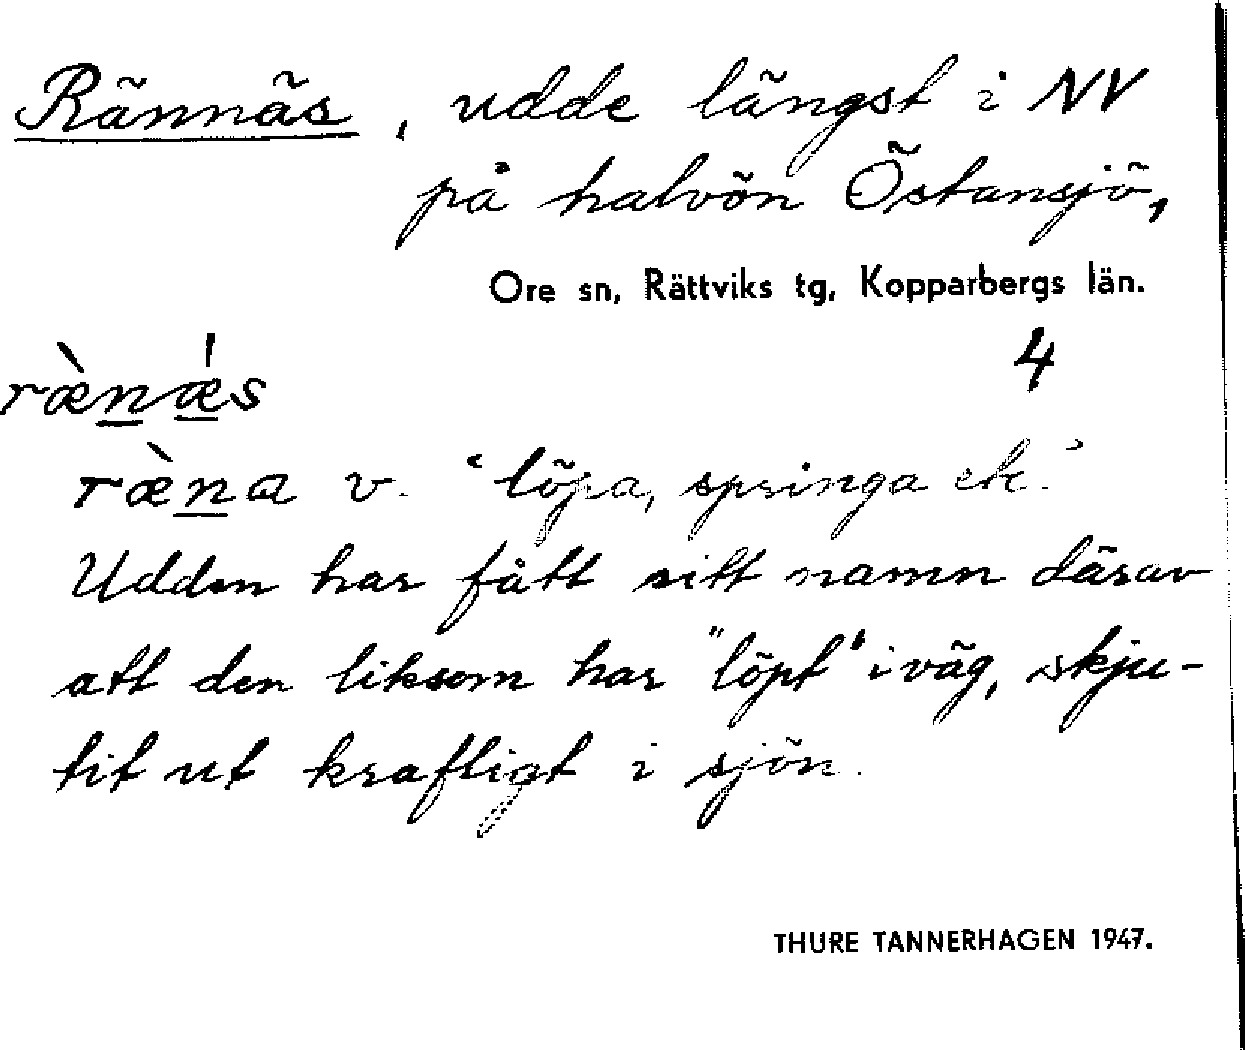 Rännäs, udde längst i NV
på halvön Östansjö,
Ore sn, Rättviks tg, Kopparbergs län.
4
ræ̀nǽs
ræ̀na v. ‘löpa, springa etc.’
Udden har fått sitt namn därav
att den liksom har "löpt" iväg, skju-
tit ut kraftigt i sjön.
THURE TANNERHAGEN 1947.